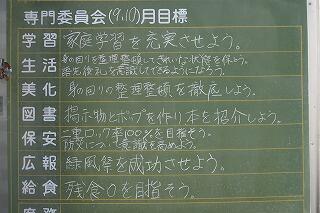 専門委員会(9,10)月目標
学習 家庭学習を充実させよう。
生活 身の回りを整理整頓してきれいな状態を保とう。
優先後先を意識してできるようになろう。
美化 身の回りの整理整頓を徹底しよう。
図書 掲示物とポップを作り本を紹介しよう。
保安 二重ロック率100%を目指そう。
防災について意識を高めよう。
広報 緑風祭を成功させよう。
給食 残食0を目指そう。
庶務